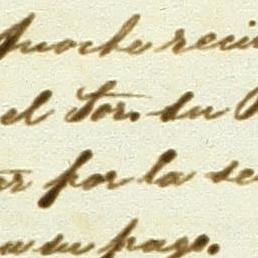 noche reci
el Sor. du
por la se
a su pago.